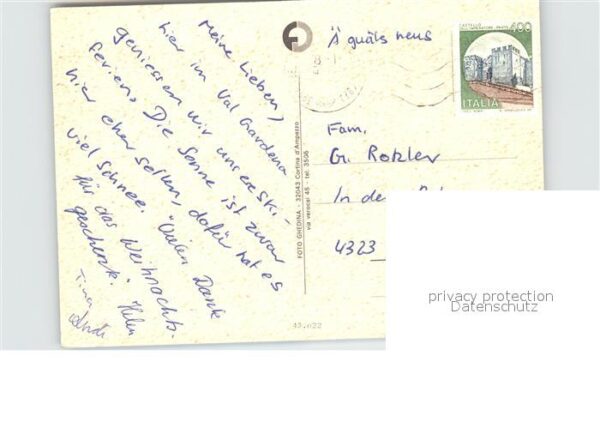 Meine Lieben,
hier im Val Gardena
geniessen wir unsere Ski-
ferien. Die Sonne ist zwar
hier eher selten, dafür hat es
viel Schnee. Vielen Dank
für das Weihnachts-
geschenk. Helen
Tina
FOTO GHEDINA - 32043 Cortina d'Ampezzo
via verocai 45 - tel. 3506
43.022
Ä guäts neus
CASTELLO
400
ITALIA
Fam.
G. Rotzler
In de
4323
privacy protection
Datenschutz